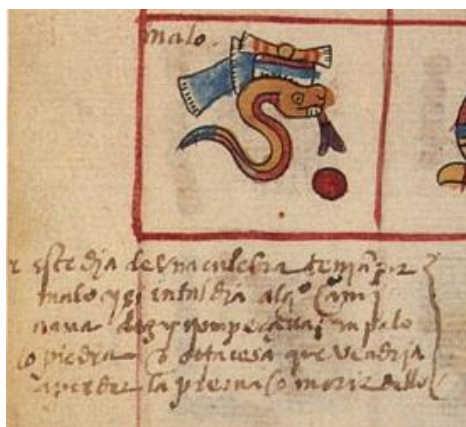 malo.
este dia de una culebra tenia por
malo y si en tal dia alg° cami
nava
o piedra o otra cosa que vendria
a perder la pierna o morir dello